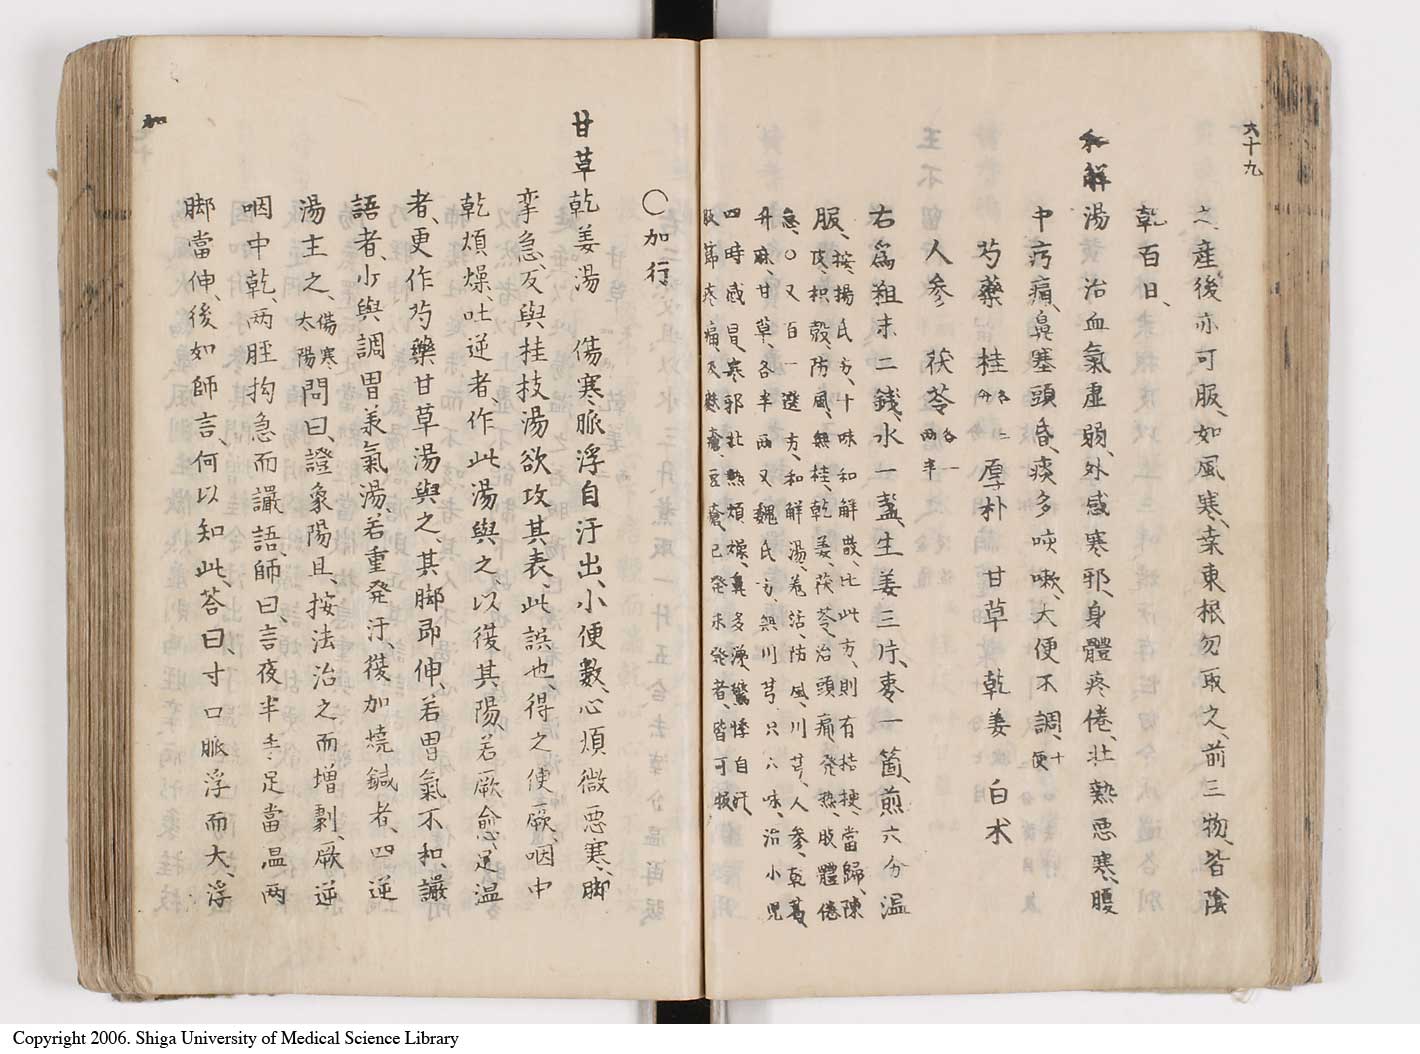 六十九
之、產後亦可服、如風寒、桒東根勿取之、前三物、皆陰
乾百日、
和解湯治血氣虛弱、外感寒邪、身體疼倦、壯熱惡寒、腹
中疞痛、鼻塞頭昏、痰多咳嗽、大便不調、十便
芍藥 桂各二分 厚朴 甘草 乾姜 白术
人參 茯苓各一兩半
右爲粗末二錢、水一盞、生姜三片、棗一箇、煎六分、温
服、按、揚氏方、十味和解散、比此方、則有桔梗、當歸、陳
皮、枳殼、防風、無桂、乾姜、茯苓、治頭痛、発熱、肢體倦
怠、○又百一選方、和解湯、羌活、防風、川芎、人參、乾葛
升麻、甘草、各半兩又魏氏方、無川芎、只六味、治小児
四時感冒、寒邪壯熱煩燥、鼻多濞、驚悸自汗、
肢節疼痛、及麸瘡、豆瘡、已発未発者、皆可服
○加行
甘草乾姜湯 傷寒脈浮自汗出、小便數、心煩微惡寒、脚
挛急、反與桂枝湯欲攻其表、此誤也得之使厥、咽中
乾煩燥、吐逆者、作此湯與之、以復其陽若厥愈、足温
者、更作芍藥甘草湯與之、其脚即伸、若胃氣不和、讝
語者、少與調胃承氣湯、若重発汗復加燒鍼者、四逆
湯主之、傷寒太陽問曰、證象陽旦、按法治之而增劇、厥逆
咽中乾、兩脛拘急而讝語師曰、言夜半手足當温兩
脚當伸、後如師言、何以知此荅曰寸口脈浮而大、浮
加
Copyright 2006. Shiga University of Medical Science Library